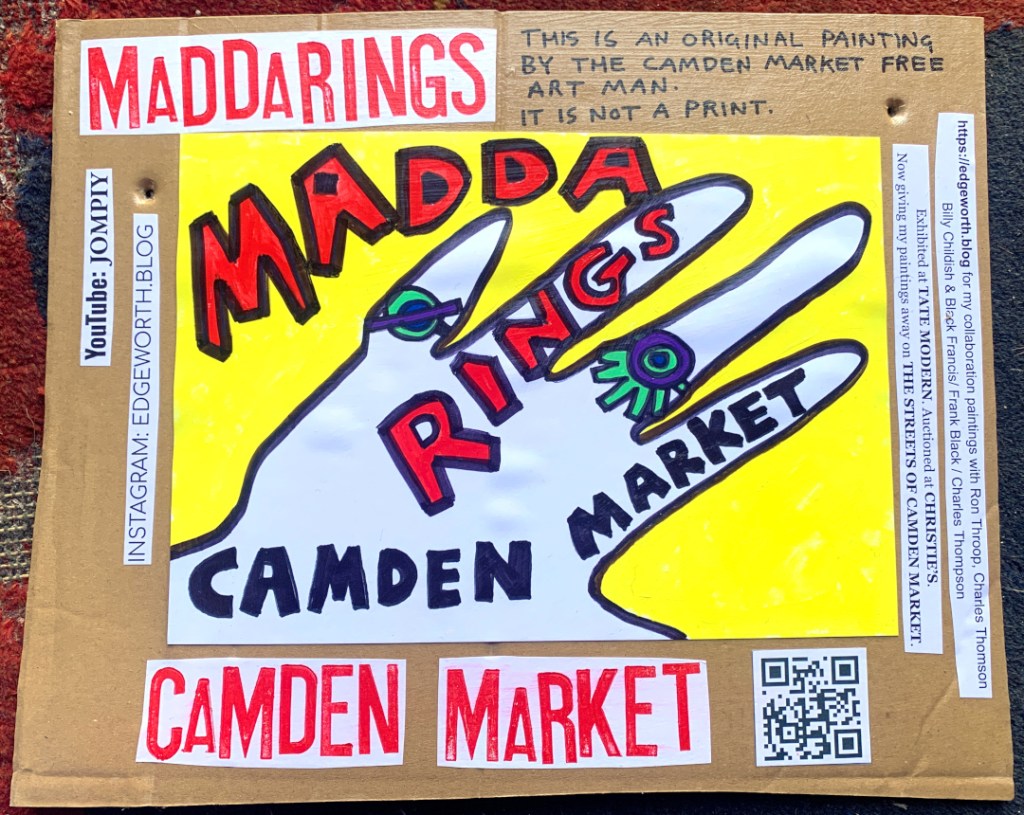 MADDARINGS
THIS IS AN ORIGINAL PAINTING
BY THE CAMDEN MARKET FREE
ART MAN.
IT IS NOT A PRINT.
YouTube: JOMPIY
INSTAGRAM: EDGEWORTH.BLOG
MADDA
RINGS
CAMDEN
MARKET
https://edgeworth.blog for my collaboration paintings with Ron Throop, Charles Thomson
Billy Childish & Black Francis/ Frank Black / Charles Thompson
Exhibited at TATE MODERN. Auctioned at CHRISTIE'S.
Now giving my paintings away on THE STREETS OF CAMDEN MARKET.
CAMDEN MARKET